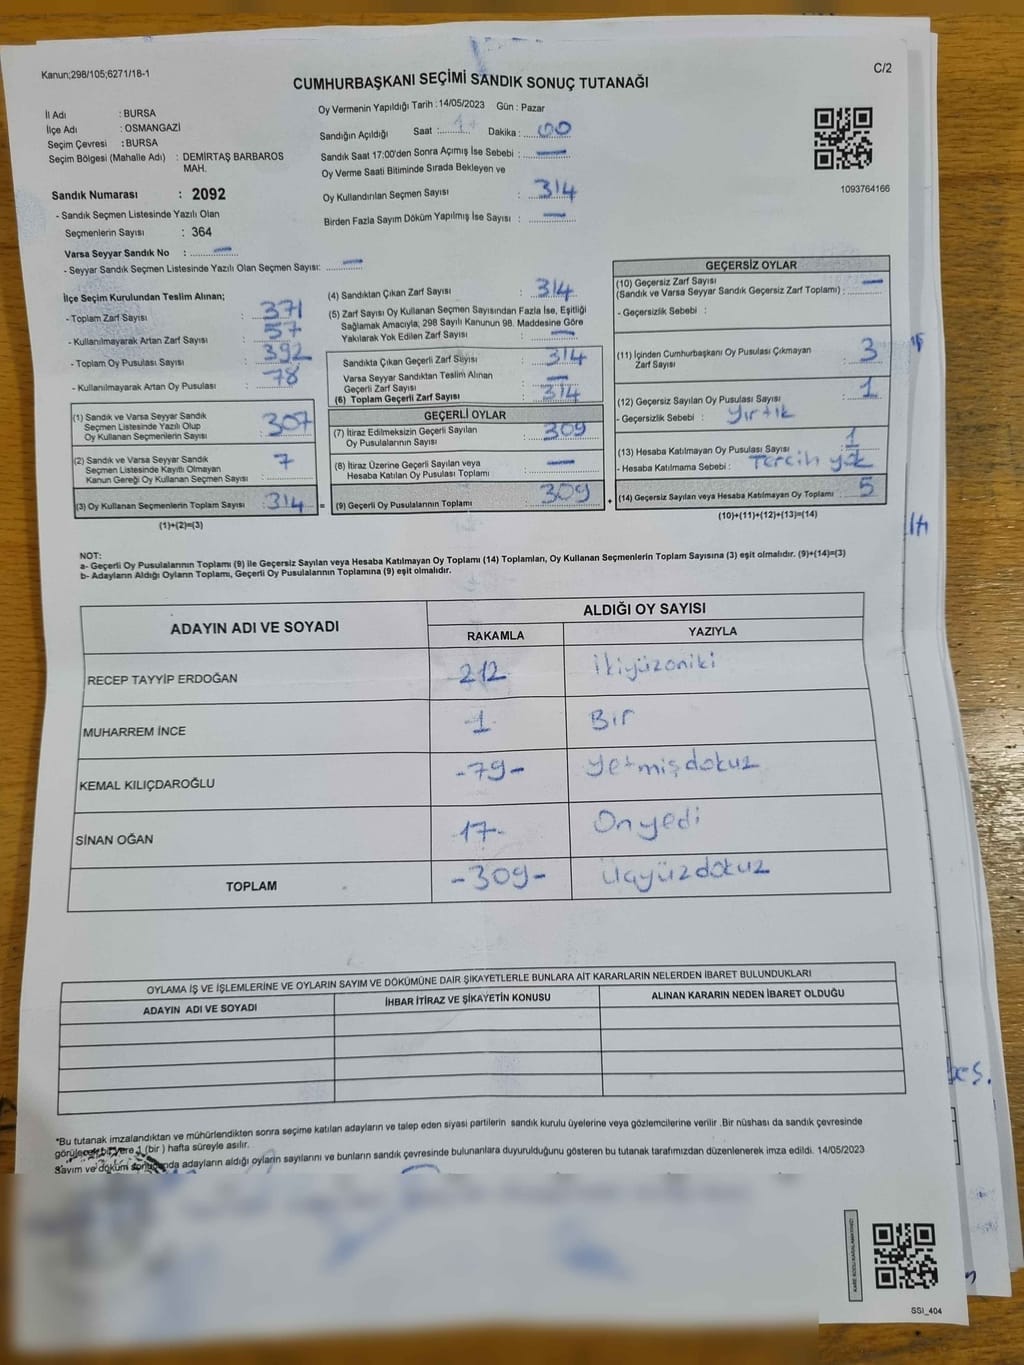 Kanun;298/105;6271/18-1
C/2
CUMHURBAŞKANI SEÇİMİ SANDIK SONUÇ TUTANAĞI
İl Adı : BURSA
İlçe Adı : OSMANGAZİ
Seçim Çevresi : BURSA
Seçim Bölgesi (Mahalle Adı) : DEMİRTAŞ BARBAROS
MAH.
Sandık Numarası : 2092
- Sandık Seçmen Listesinde Yazılı Olan
Seçmenlerin Sayısı : 364
Varsa Seyyar Sandık No : —
- Seyyar Sandık Seçmen Listesinde Yazılı Olan Seçmen Sayısı: —
Oy Vermenin Yapıldığı Tarih : 14/05/2023 Gün : Pazar
Sandığın Açıldığı Saat : Dakika : 00
Sandık Saat 17:00'den Sonra Açımış İse Sebebi : —
Oy Verme Saati Bitiminde Sırada Bekleyen ve
Oy Kullandırılan Seçmen Sayısı : 314
Birden Fazla Sayım Döküm Yapılmış İse Sayısı : —
1093764166
İlçe Seçim Kurulundan Teslim Alınan;
- Toplam Zarf Sayısı : 371
- Kullanılmayarak Artan Zarf Sayısı : 57
- Toplam Oy Pusulası Sayısı : 392
- Kullanılmayarak Artan Oy Pusulası : 78
(1) Sandık ve Varsa Seyyar Sandık
Seçmen Listesinde Yazılı Olup
Oy Kullanan Seçmenlerin Sayısı : 307
(2) Sandık ve Varsa Seyyar Sandık
Seçmen Listesinde Kayıtlı Olmayan
Kanun Gereği Oy Kullanan Seçmen Sayısı : 7
(3) Oy Kullanan Seçmenlerin Toplam Sayısı : 314 =
(1)+(2)=(3)
(4) Sandıktan Çıkan Zarf Sayısı : 314
(5) Zarf Sayısı Oy Kullanan Seçmen Sayısından Fazla İse, Eşitliği
Sağlamak Amacıyla; 298 Sayılı Kanunun 98. Maddesine Göre
Yakılarak Yok Edilen Zarf Sayısı : —
Sandıkta Çıkan Geçerli Zarf Sayısı : 314
Varsa Seyyar Sandıktan Teslim Alınan
Geçerli Zarf Sayısı : —
(6) Toplam Geçerli Zarf Sayısı : 314
GEÇERLİ OYLAR
(7) İtiraz Edilmeksizin Geçerli Sayılan
Oy Pusulalarının Sayısı : 309
(8) İtiraz Üzerine Geçerli Sayılan veya
Hesaba Katılan Oy Pusulası Toplamı : —
(9) Geçerli Oy Pusulalarının Toplamı : 309 +
GEÇERSİZ OYLAR
(10) Geçersiz Zarf Sayısı
(Sandık ve Varsa Seyyar Sandık Geçersiz Zarf Toplamı) : —
- Geçersizlik Sebebi :
(11) İçinden Cumhurbaşkanı Oy Pusulası Çıkmayan
Zarf Sayısı : 3
(12) Geçersiz Sayılan Oy Pusulası Sayısı : 1
- Geçersizlik Sebebi : yırtık
(13) Hesaba Katılmayan Oy Pusulası Sayısı : 1
- Hesaba Katılmama Sebebi : Tercih yok
(14) Geçersiz Sayılan veya Hesaba Katılmayan Oy Toplamı : 5
(10)+(11)+(12)+(13)=(14)
NOT:
a- Geçerli Oy Pusulalarının Toplamı (9) ile Geçersiz Sayılan veya Hesaba Katılmayan Oy Toplamı (14) Toplamları, Oy Kullanan Seçmenlerin Toplam Sayısına (3) eşit olmalıdır. (9)+(14)=(3)
b- Adayların Aldığı Oyların Toplamı, Geçerli Oy Pusulalarının Toplamına (9) eşit olmalıdır.
ADAYIN ADI VE SOYADI ALDIĞI OY SAYISI
RAKAMLA YAZIYLA
RECEP TAYYİP ERDOĞAN 212 İkiyüzoniki
MUHARREM İNCE 1 Bir
KEMAL KILIÇDAROĞLU -79- yetmişdokuz
SİNAN OĞAN 17- Onyedi
TOPLAM -309- üçyüzdokuz
OYLAMA İŞ VE İŞLEMLERİNE VE OYLARIN SAYIM VE DÖKÜMÜNE DAİR ŞİKAYETLERLE BUNLARA AİT KARARLARIN NELERDEN İBARET BULUNDUKLARI
ADAYIN ADI VE SOYADI İHBAR İTİRAZ VE ŞİKAYETİN KONUSU ALINAN KARARIN NEDEN İBARET OLDUĞU
*Bu tutanak imzalandıktan ve mühürlendikten sonra seçime katılan adayların ve talep eden siyasi partilerin sandık kurulu üyelerine veya gözlemcilerine verilir .Bir nüshası da sandık çevresinde
görülecek bir yere 1 (bir ) hafta süreyle asılır.
Sayım ve döküm sonucunda adayların aldığı oyların sayılarını ve bunların sandık çevresinde bulunanlara duyurulduğunu gösteren bu tutanak tarafımızdan düzenlenerek imza edildi. 14/05/2023
SSI_404